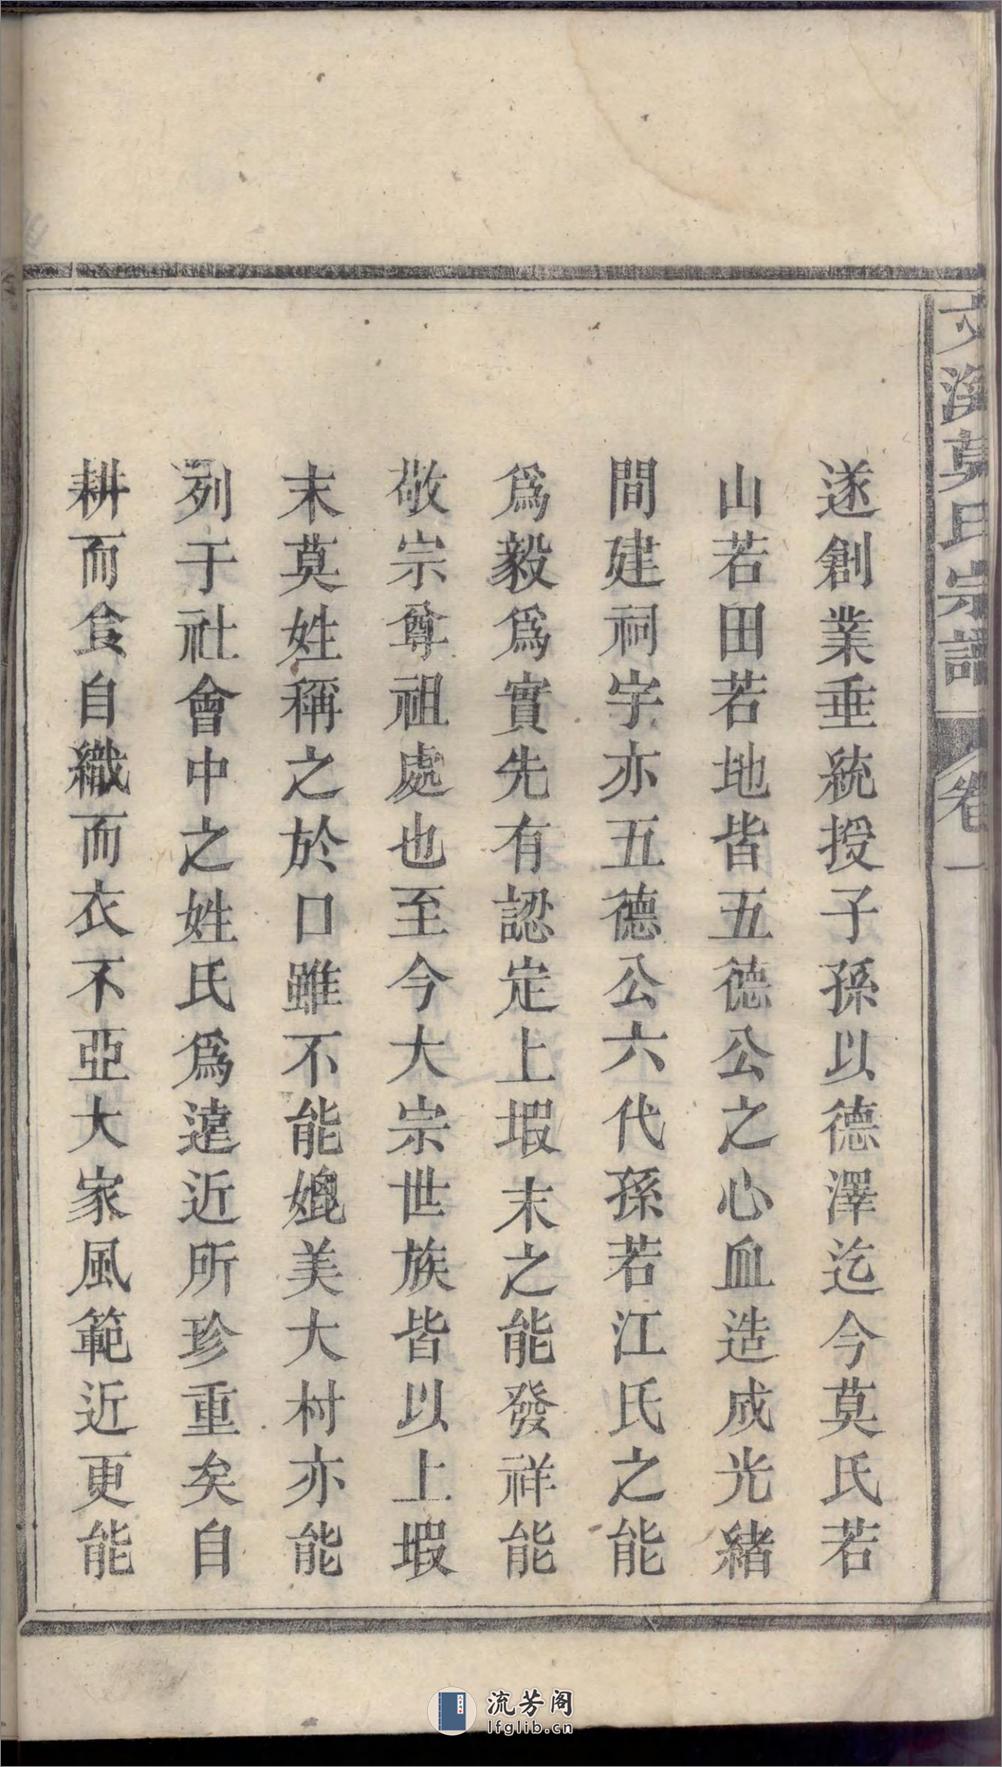 文溪莫氏宗譜 卷一
遂創業垂統授子孫以德澤迄今莫氏若
山若田若地皆五德公之心血造成光緒
間建祠宇亦五德公六代孫若江氏之能
爲毅爲實先有認定上塅末之能發祥能
敬宗尊祖處也至今大宗世族皆以上塅
末莫姓稱之於口雖不能媲美大村亦能
列于社會中之姓氏爲遠近所珍重矣自
耕而食自織而衣不亞大家風範近更能
流芳阁
lfglib.cn